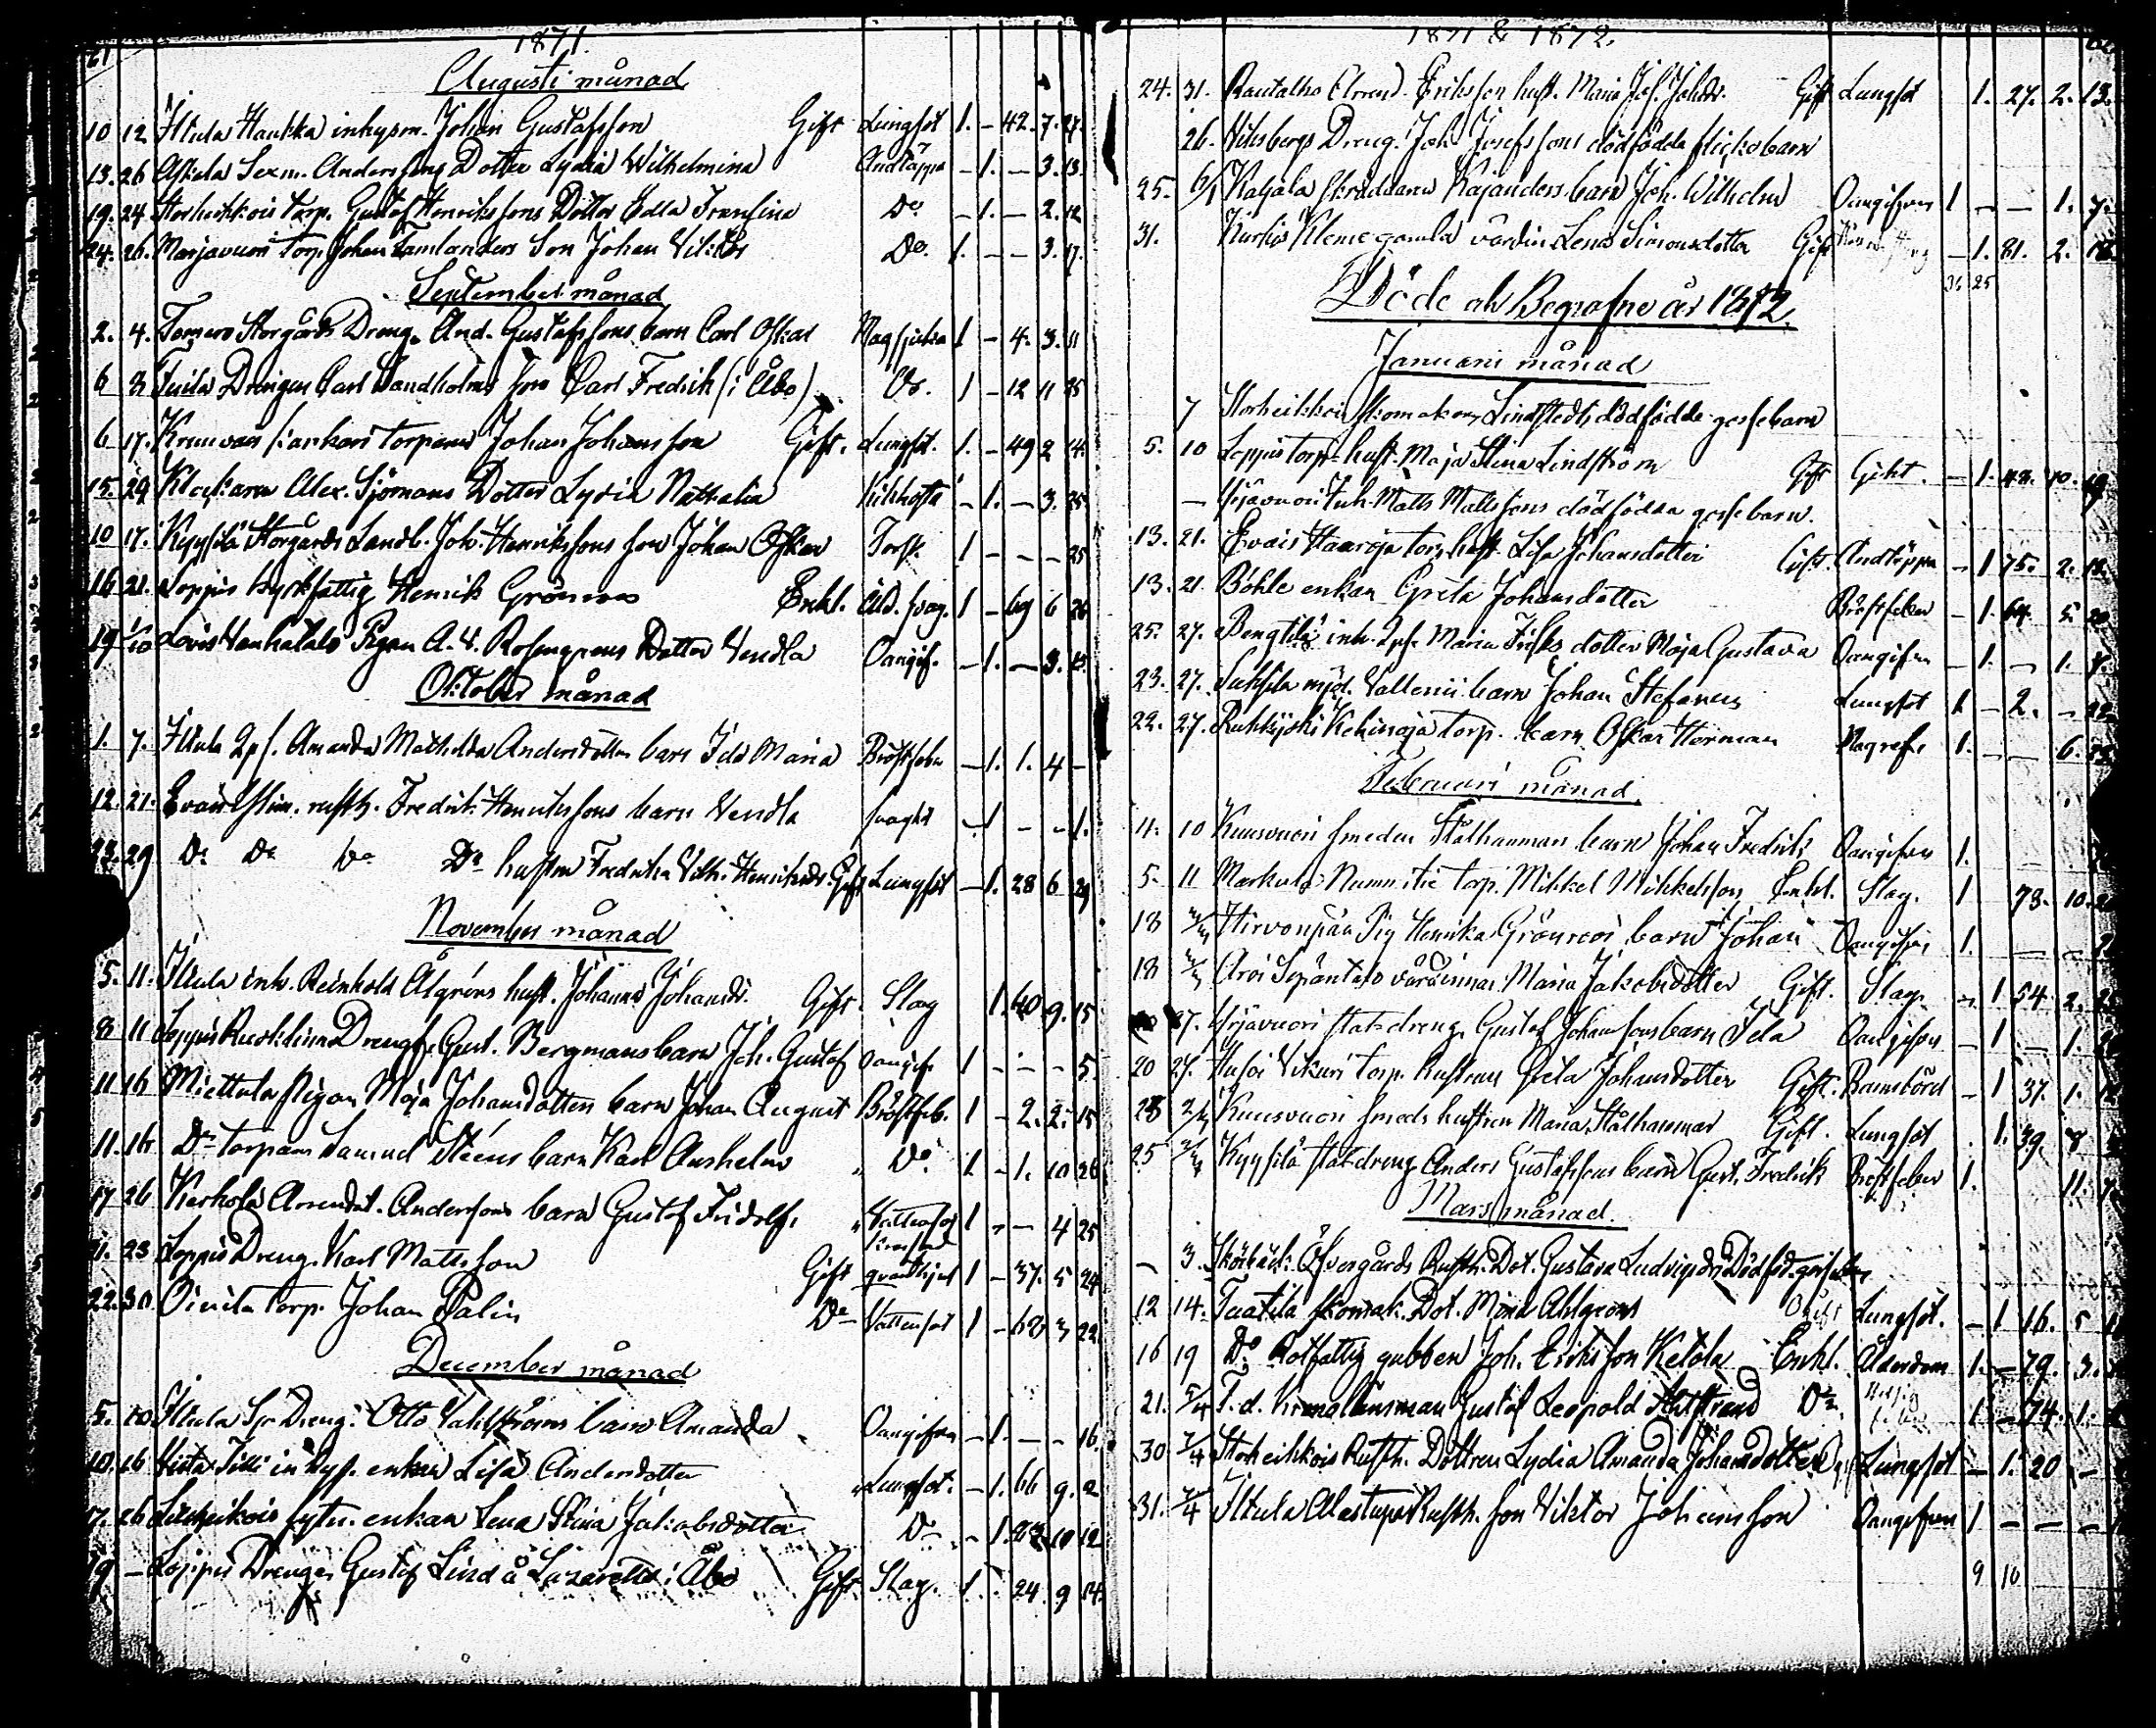 61
1871.
Augusti månad
10 12 Iltula Haukka inhysm. Johan Gustafsson Gift Lungsot 1. - 42. 7. 27.
13. 26 Askela Sexm. Anderssons Dotter Lydia Wilhelmina Andtäppa - 1. - 3. 13.
19. 24 Storheikkois torp. Gustaf Henrikssons Dotter Edla Fransina Do - 1. - 2. 12
24. 26. Marjavuori torp. Johan Tamlanders Son Johan Viktor Do. 1. - - 3. 17.
September månad
2. 4. Storgårds Dreng. And. Gustafssons barn Carl Oskar Magsjuka 1 - 4. 3. 11
6 8 Tuila Drengen Carl Sandholms son Carl Fredrik (i Åbo) Do. 1 - 12 11 25
6 17. torparen Johan Johansson Gift. Lungsot. 1. - 49 2 14.
15. 29 Klockaren Alex. Sjömans Dotter Lydia Nathalia Kikhosta - 1. - 3. 25
10 17. Kyysilä Storgårds Landb. Joh. Henrikssons son Johan Oskar Torsk 1 - - - 25
16 21. Loppis kyrkfattig Henrik Grönroos Enkl. Åld. svag. 1 - 69 6 26
19 Pigan A. V. Rosengrens Dotter Vendla Oangif. - 1. - 3.
Oktober månad
1. 7. Iltula Qps. Amanda Mathilda Andersdotters barn Ida Maria Bröstfeber - 1. 1. 4 -
12. 21. Evais rusth. Fredrik Henrikssons barn Vendla svaght - 1 - - 1.
23. 29 Do Do Do Do hustru Fredrika Vilh. Henriksdr. Gift Lungsot - 1. 28 6 29
November månad
5. 11. Iltula inh. Reinhold Ålgréns hust. Johanna Johansdr. Gift. Slag 1. 40 9. 15
8 11 Loppis Drengs. Gust. Bergmans barn Joh. Gustaf Oangif. 1 - - - 5.
11 16 Miettula pigan Maja Johansdotters barn Johan August Bröstfeb. 1 - 2. 2. 15
11. 16 Do torparn Samuel Sténs barn Karl Anshelm " Do 1 - 1. 10 26
17 26 Karhola Arrendat. Anderssons barn Gustaf Fridolf. " Vattensot 1 - - 4 25
21. 23 Loppis Dreng. Karl Mattsson Gift 1 - 37. 5 24
22. 30 torp. Johan Palin Do Vattensot 1 - 62 3 22
December månad
5. 10 Iltula Dreng. Otto Vahlströms barn Amanda Oangifven - 1. - - 16.
10. 16 inhys. enkan Lisa Andersdotter " Lungsot. - 1. 66 9. 2
17. 26 enkan Lena Stina Jakobsdotter Do - 1. 82 10 12
19 - Loppis Drengen Gustaf Lind å Lazarettet i Åbo Gift Slag. 1. - 24. 9 14.
1871 & 1872.
24. 31. Rautalho Erikssons hust. Maria Jos. Johdr. Gift Lungsot 1. 27. 2. 13.
26. Viksbergs Dreng. Joh. Josefssons dödfödda flickobarn
25. 6/1 Katjala skräddaren Kajanders barn Joh. Wilhelm Oangifven 1 - - 1. 7.
31. Kurkis Kleme gamla värdin Lena Simonsdotter Gift - 1. 81. 2. 18
36 25
Döde och Begrafne år 1872.
Januari månad
7 Storheikkois skomakare Lindstedts dödfödde gossebarn
5. 10 Loppis torp. hust. Maja Stina Lindström Gift Gikt. - 1. 42. 10. 19
- Yrjävuori Inh. Matts Mattssons dödfödda gossebarn.
13. 21. Evais Haaroja torp. hust. Lisa Johansdotter Gift. Andtäppa - 1 75. 2. 18.
13. 21. Böhle enkan Greta Johansdotter Bröstfeber - 1. 64 5 20
25. 27. Bengtilä inh. Qps. Maria dotter Maja Gustava Oangifven - 1. - 1. 4.
23. 27. Suksila mjöl. Vallenii barn Johan Stefanus Lungsot 1 - 2. - 22
22. 27. Ruhkyoski Kehinoja torp. barn Oskar Herman Magref. 1. - - 6. 23
Februari månad.
4. 10 Kuusvuori smeden Stålhammars barn Johan Fredrik Oangifven 1.
5. 11 Markula Nummitie torp. Mikkel Mikkelsson Enkl. Slag. 1 73. 10.
18 Hirvonpää Pig. Henrika Grönroos barn Johan Oangifven 1. - -
18 Aroi Sepäntalo värdinnan Maria Jakobsdotter Gift. Slag. - 1 54 2. 23
27. Yrjävuori statdreng. Gustaf Johanssons barn Ida Oangifven - 1 - 1.
20 27. Husoi Vikari torp. hustrun Greta Johansdotter Gift. Barnsbörd - 1 37. 1. 12
28 Kuusvuori smeds hustrun Maria Stålhammar Gift. Lungsot 1. 39. 8
25 Kyysilä statdreng Anders Gustafssons barn Gust. Fredrik Bröstfeber 1. 11.
Mars månad.
- 3. Öfvergårds Rusth. Dot. Gustava Ludvigsdr. Dödföd. gossebarn
12 14. Tuatila skomak. Dot. Mina Ahlgrens Ogift Lungsot. - 1 16. 5
16 19 Do Rotfattig gubben Joh. Eriksson Ketola Enkl. Ålderdom 1. - 79. 3.
21. 5/4 F. d. Kronolänsman Gustaf Leopold Do. 1 - 74. 1.
30 7/4 Storheikkois Rusth. Dottren Lydia Amanda Johansdotter Ogift Lungsot - 1. 20 -
31. 7/4 Iltula Alastupa Rusth. son Viktor Johansson Oangifven 1 - - -
9 10